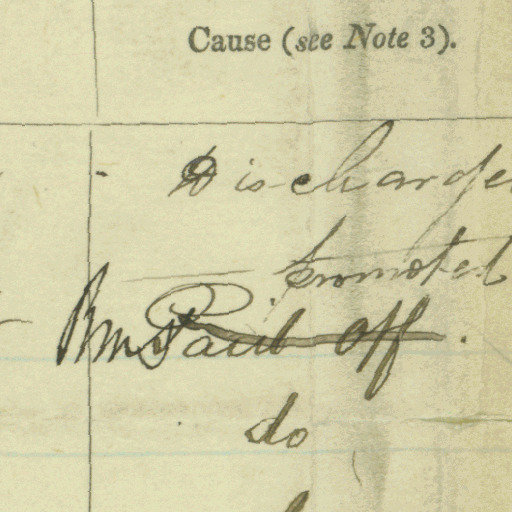 Cause (see Note 3).
Discharged
promoted
Paid Off.
do